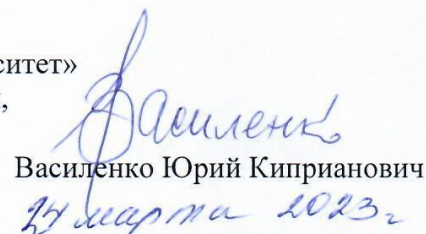 ситет»
,
Василенко
Василенко Юрий Киприанович
24 марта 2023 г